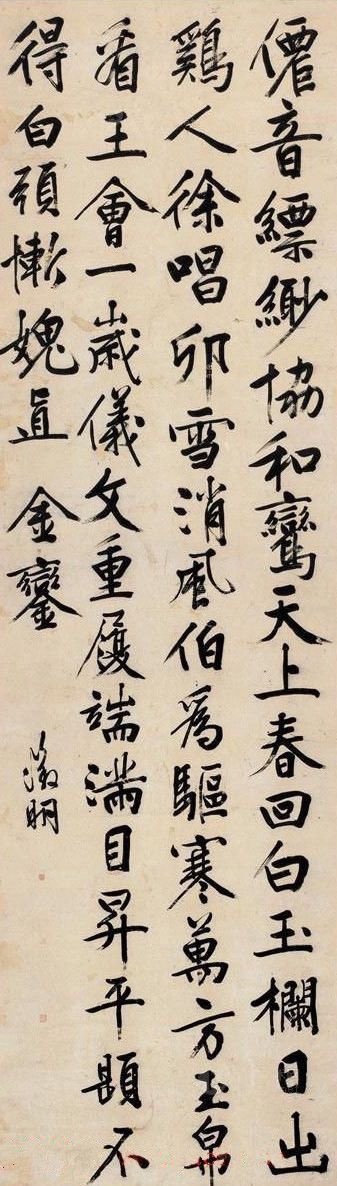 僊音縹緲協和鸞天上春回白玉欄日出
鷄人徐唱卯雪消風伯爲驅寒萬方玉帛
看王會一歲儀文重履端滿目昇平題不
得白頭慚媿直金鑾
徵明